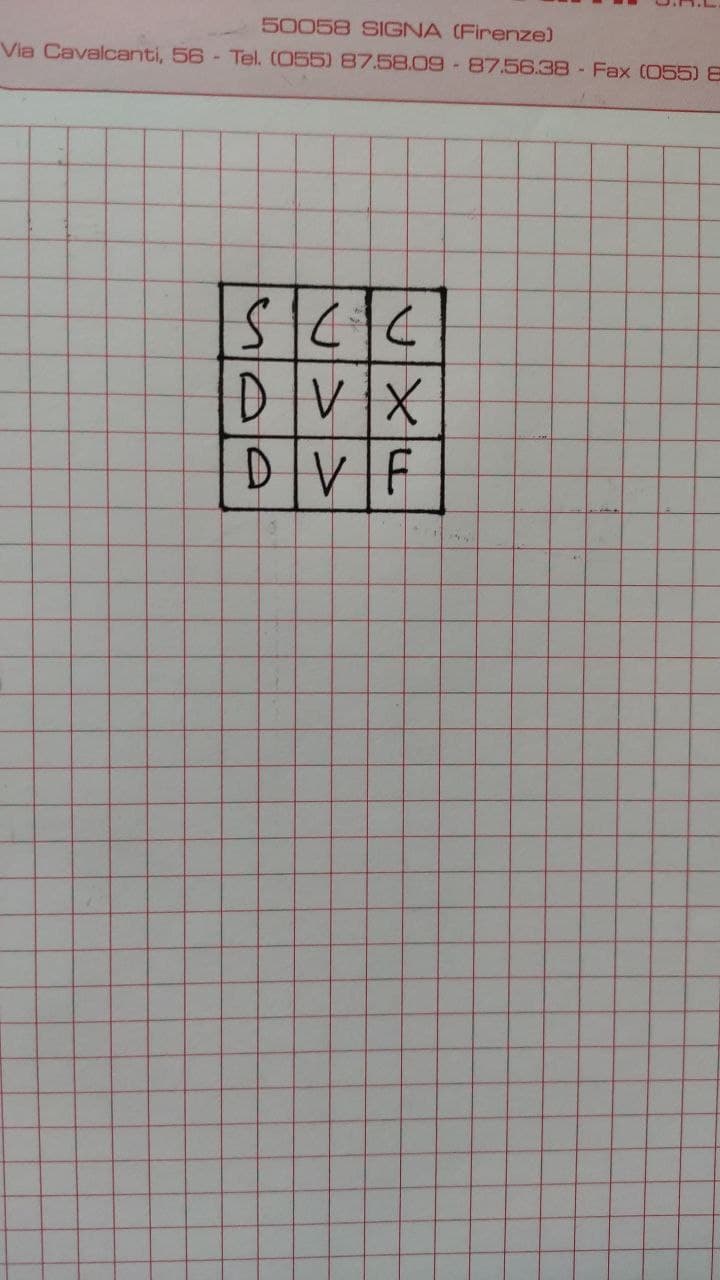 50058 SIGNA (Firenze)
Via Cavalcanti, 56 - Tel. (055) 87.58.09 - 87.56.38 - Fax (055) 8
S C C
D V X
D V F